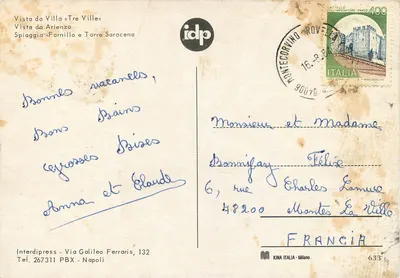 Vista da Villa «Tre Ville»
Vista da Arienzo
Spiaggia Fornillo e Torre Saracena
idp
400
ITALIA
MONTECORVINO ROVELLA
Bonnes vacances,
Bons Bains
Grosses Bises
Anna et Claude
Monsieur et Madame
Bonnifay Félix
6, rue Charles
48200 Montes La Ville
FRANCIA
Interdipress - Via Galileo Ferraris, 132
Tel. 267311 PBX - Napoli
KINA ITALIA - Milano
633